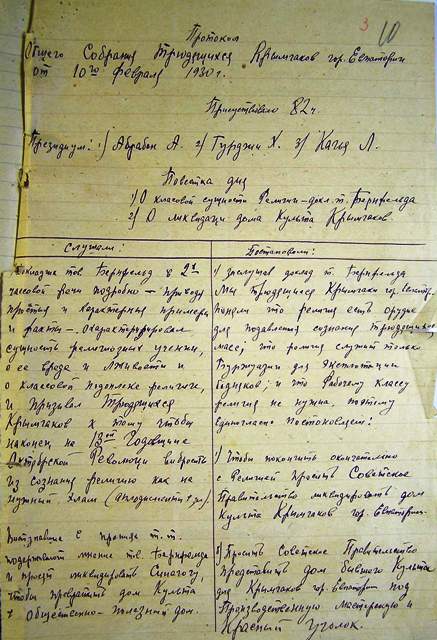 3 10
Протокол
Общего Собрания трюдящихся Крымчаков гор. Евпатории
от 10го февраля 1930 г.
Присутствовало 82 ч.
Президиум: 1) Абрабен А. 2) Гурджи Х. 3) Кагья Л.
Повестка дня
1) О классовой сущности Религии – докл. т. Бернфельда
2) О ликвидаци дома Культа Крымчаков
Слушали:
Докладчик тов. Бернфельд в 2х
часовой речи подробно – приводя
и характерные примеры
и факты – охарактеризировал
сущность религиозных учении,
о ее вреде и лживости и
о классовой подоплеке религии,
и призывал трюдящихся
Крымчаков к тому чтобы
наконец на 13ой Годовщине
Октябрской Революци выбросить
из сознания религию как не
нужный хлам
Выступавшие в прениях т.т.
подержали мнение тв. Бернфельда
и просят ликвидировать Синагогу,
чтобы превратить дом Культа
в Общественно-полезный дом.
Постановили:
1) заслушав доклад т. Бернфельда
Мы трюдящиеся Крымчаки гор. Евпатор.
поняли что религия есть орудие
для подавления сознание трюдящихся
масс; что религия служит только
Буржуазии для эксплотации
бедняков; и что Рабочему Классу
религия не нужна. поэтому
единогласно постоновляем:
1) Чтобы покончить окончательно
с Религией просить Советское
Правительство ликвидировать дом
Культа Крымчаков гор. Евпатории.
2) Просить Советское Правительство
Предоставить дом бывшего Культа
для Крымчаков гор. Евпатории под
Производственную мастерскую и
Красный уголок.